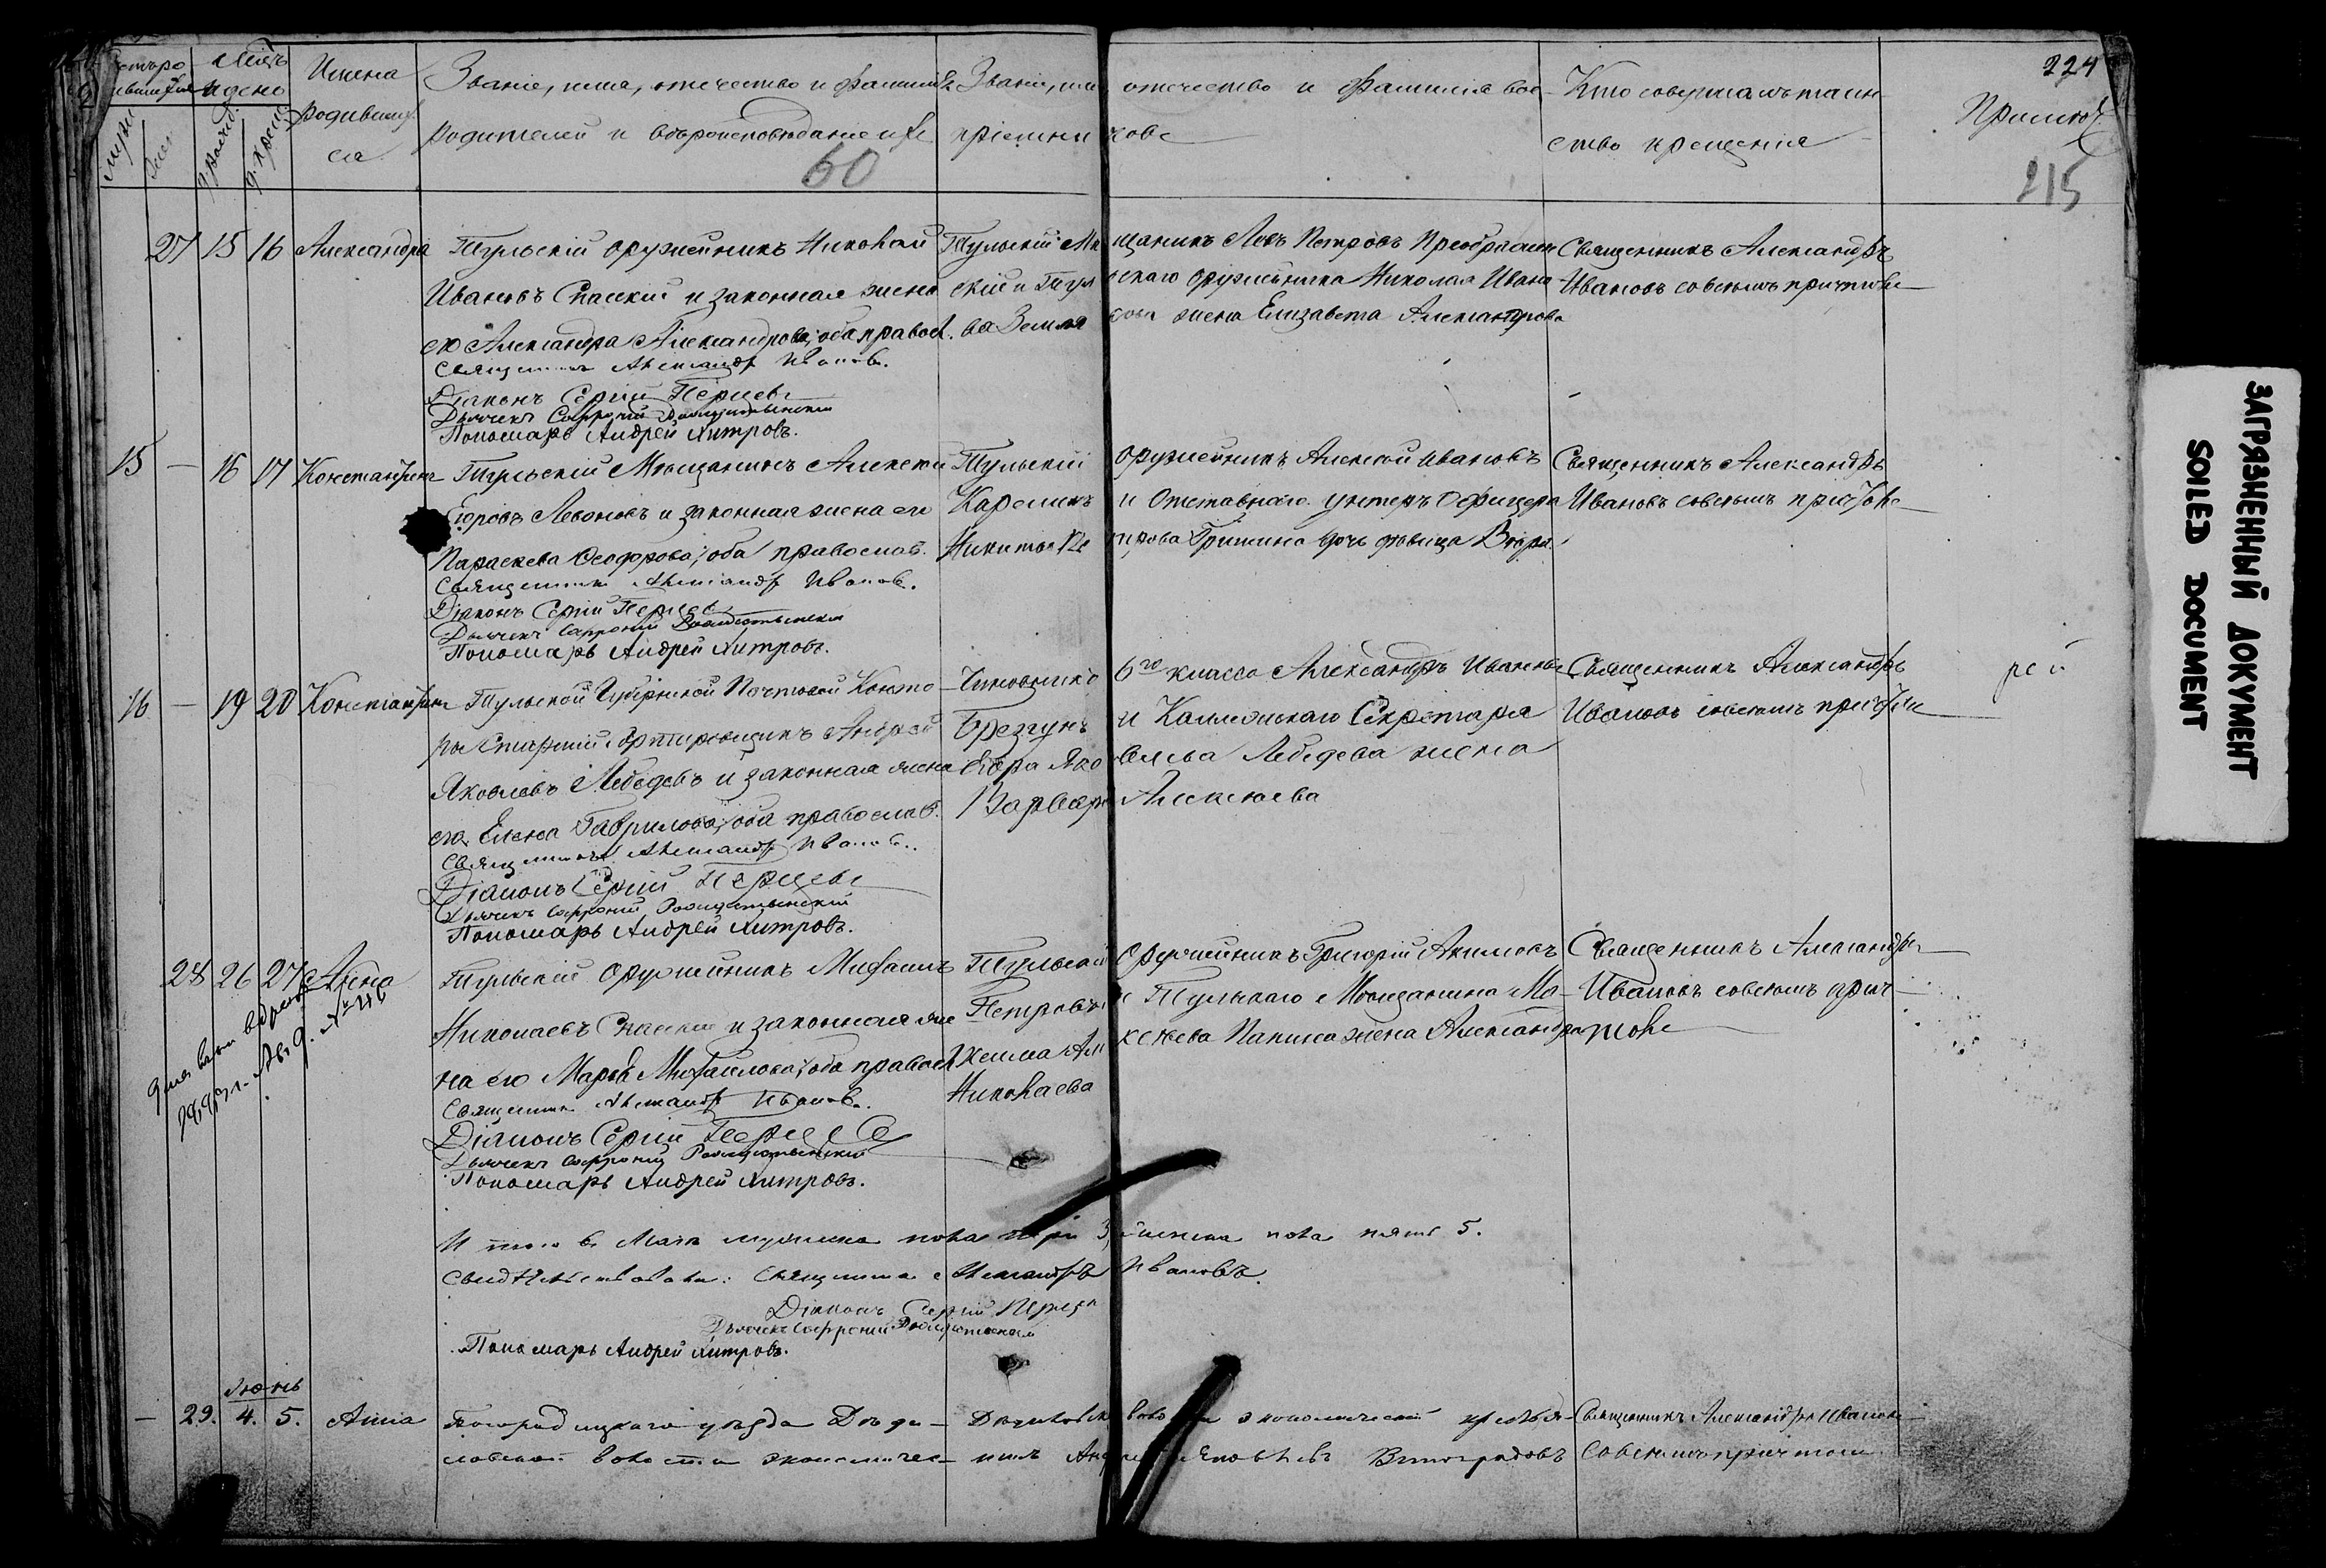 224
215
60
Мѣсяцъ
и день
Имена
родивших
ся
Званіе, имя, отечество и фамилія
родителей и вѣроисповѣданіе ихъ
Званіе, имя отечество и фамилія вос-
пріемниковъ
Кто совершалъ таин-
ство крещенія
27 15 16 Александра
Тульскій оружейникъ Николай
Ивановъ Спаскій и законная жена
его Александра Александрова, оба правосл.
Священникъ Александръ Ивановъ.
Діаконъ Сергій Перцевъ
Дьячекъ Софроній
Пономарь Андрей Хитровъ.
Тульскій Мѣщанинъ Левъ Петровъ Преображен
скій и Тульскаго оружейника Николая Ивано
ва жена Елизавета Александрова
Священникъ Александръ
Ивановъ совсѣмъ причтомъ
15 — 16 17 Константинъ
Тульскій Мѣщанинъ Алексей
Егоровъ Левоновъ и законная жена его
Параскева Феодорова, оба православ.
Священникъ Александръ Ивановъ.
Діаконъ Сергій Перцевъ
Дьячекъ Софроній
Пономарь Андрей Хитровъ.
Тульскій оружейникъ Алексей Ивановъ
Карелинъ и Отставнаго унтеръ Офицера
Никиты Гришина дочь девица Вера
Священникъ Александръ
Ивановъ совсѣмъ причтомъ
16 — 19 20 Константинъ
Тульской Губернской Почтовой Конто-
ры Старшій сортировщикъ Андрей
Яковлевъ Лебедевъ и законная жена
его Елена Гаврилова, оба православ.
Священникъ Александръ Ивановъ.
Діаконъ Сергій Перцевъ
Дьячекъ Софроній
Пономарь Андрей Хитровъ.
Чиновникъ 6го класса Александръ Ивановъ
Брезгунъ и Коллежскаго Секретаря
Егора Яковлева Лебедева жена
Варвара Алексеева
Священникъ Александръ
Ивановъ совсѣмъ причтомъ
28 26 27 Анна
Тульскій оружейникъ Михаилъ
Николаевъ Спаскій и законная же
на его Марья Михайлова, оба правосл.
Священникъ Александръ Ивановъ.
Діаконъ Сергій Перцевъ
Дьячекъ Софроній
Пономарь Андрей Хитровъ.
Тульской оружейникъ Григорій Акимовъ
Петровъ и Тульскаго Мѣщанина
жена Александра
Николаева
Священникъ Александръ
Ивановъ совсѣмъ прич-
томъ
Итого в Маѣ мужеска пола три 3, женска пола пять 5.
Свидѣтельствовали: Священникъ Александръ Ивановъ.
Діаконъ Сергій Перцевъ
Дьячекъ Софроній
Пономарь Андрей Хитровъ.
Июнь
— 29. 4. 5. Анна
Богородицкаго уѣзда
волости экономичес-
волости экономической крестья-
нинъ Андрей Яковлевъ Виноградовъ
Священникъ Александръ Ивановъ
совсѣмъ причтомъ
ЗАГРЯЗНЕННЫЙ ДОКУМЕНТ
SOILED DOCUMENT